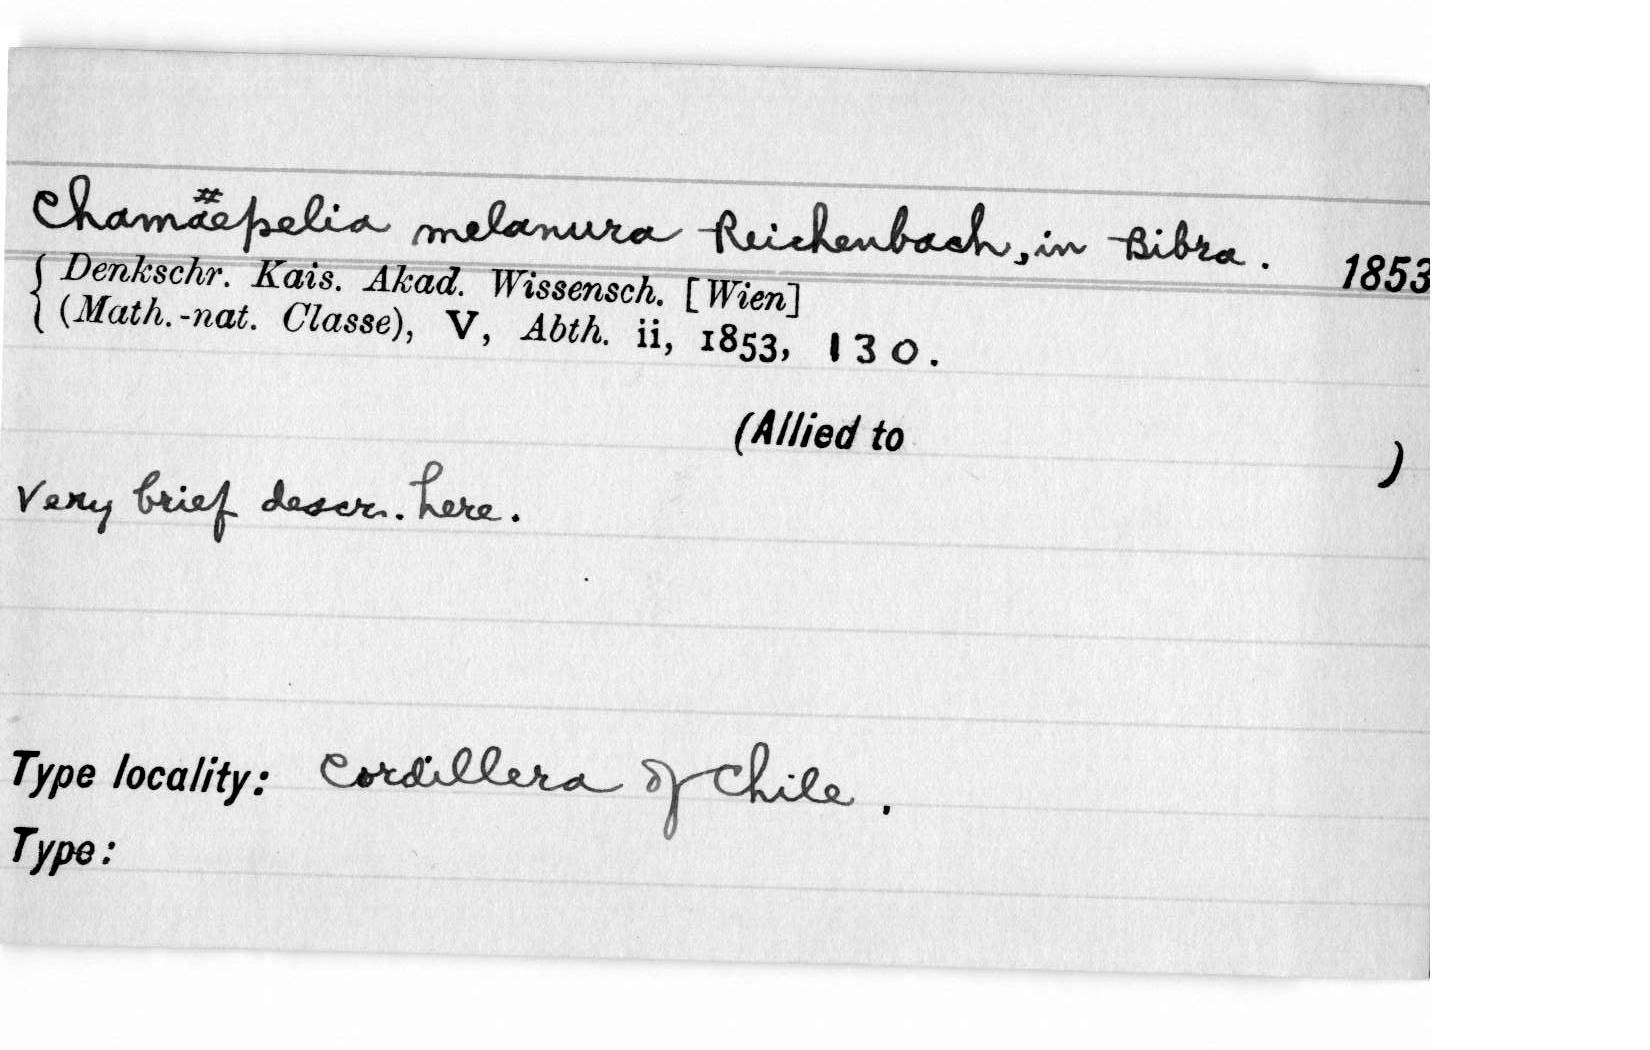 Chamäepelia melanura Reichenbach, in Bibra. 1853
{ Denkschr. Kais. Akad. Wissensch. [Wien]
(Math.-nat. Classe), V, Abth. ii, 1853, 130.
(Allied to )
Very brief descr. here.
Type locality: Cordillera of Chile.
Type: